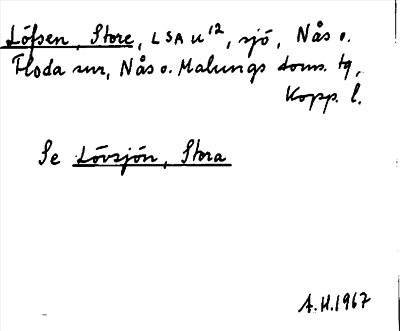 Löfsen, Store, LSA u¹², sjö, Nås o.
Floda snr, Nås o. Malungs doms. tg,
Kopp. l.
Se Lövsjön, Stora
A.H. 1967